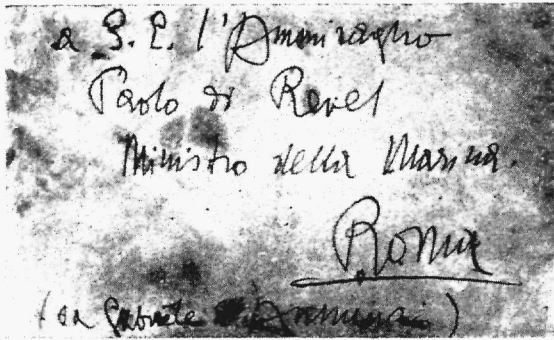 a S. E. l'Ammiraglio
Paolo di Revel
Ministro della Marina.
Roma
(da Gabriele d'Annunzio)